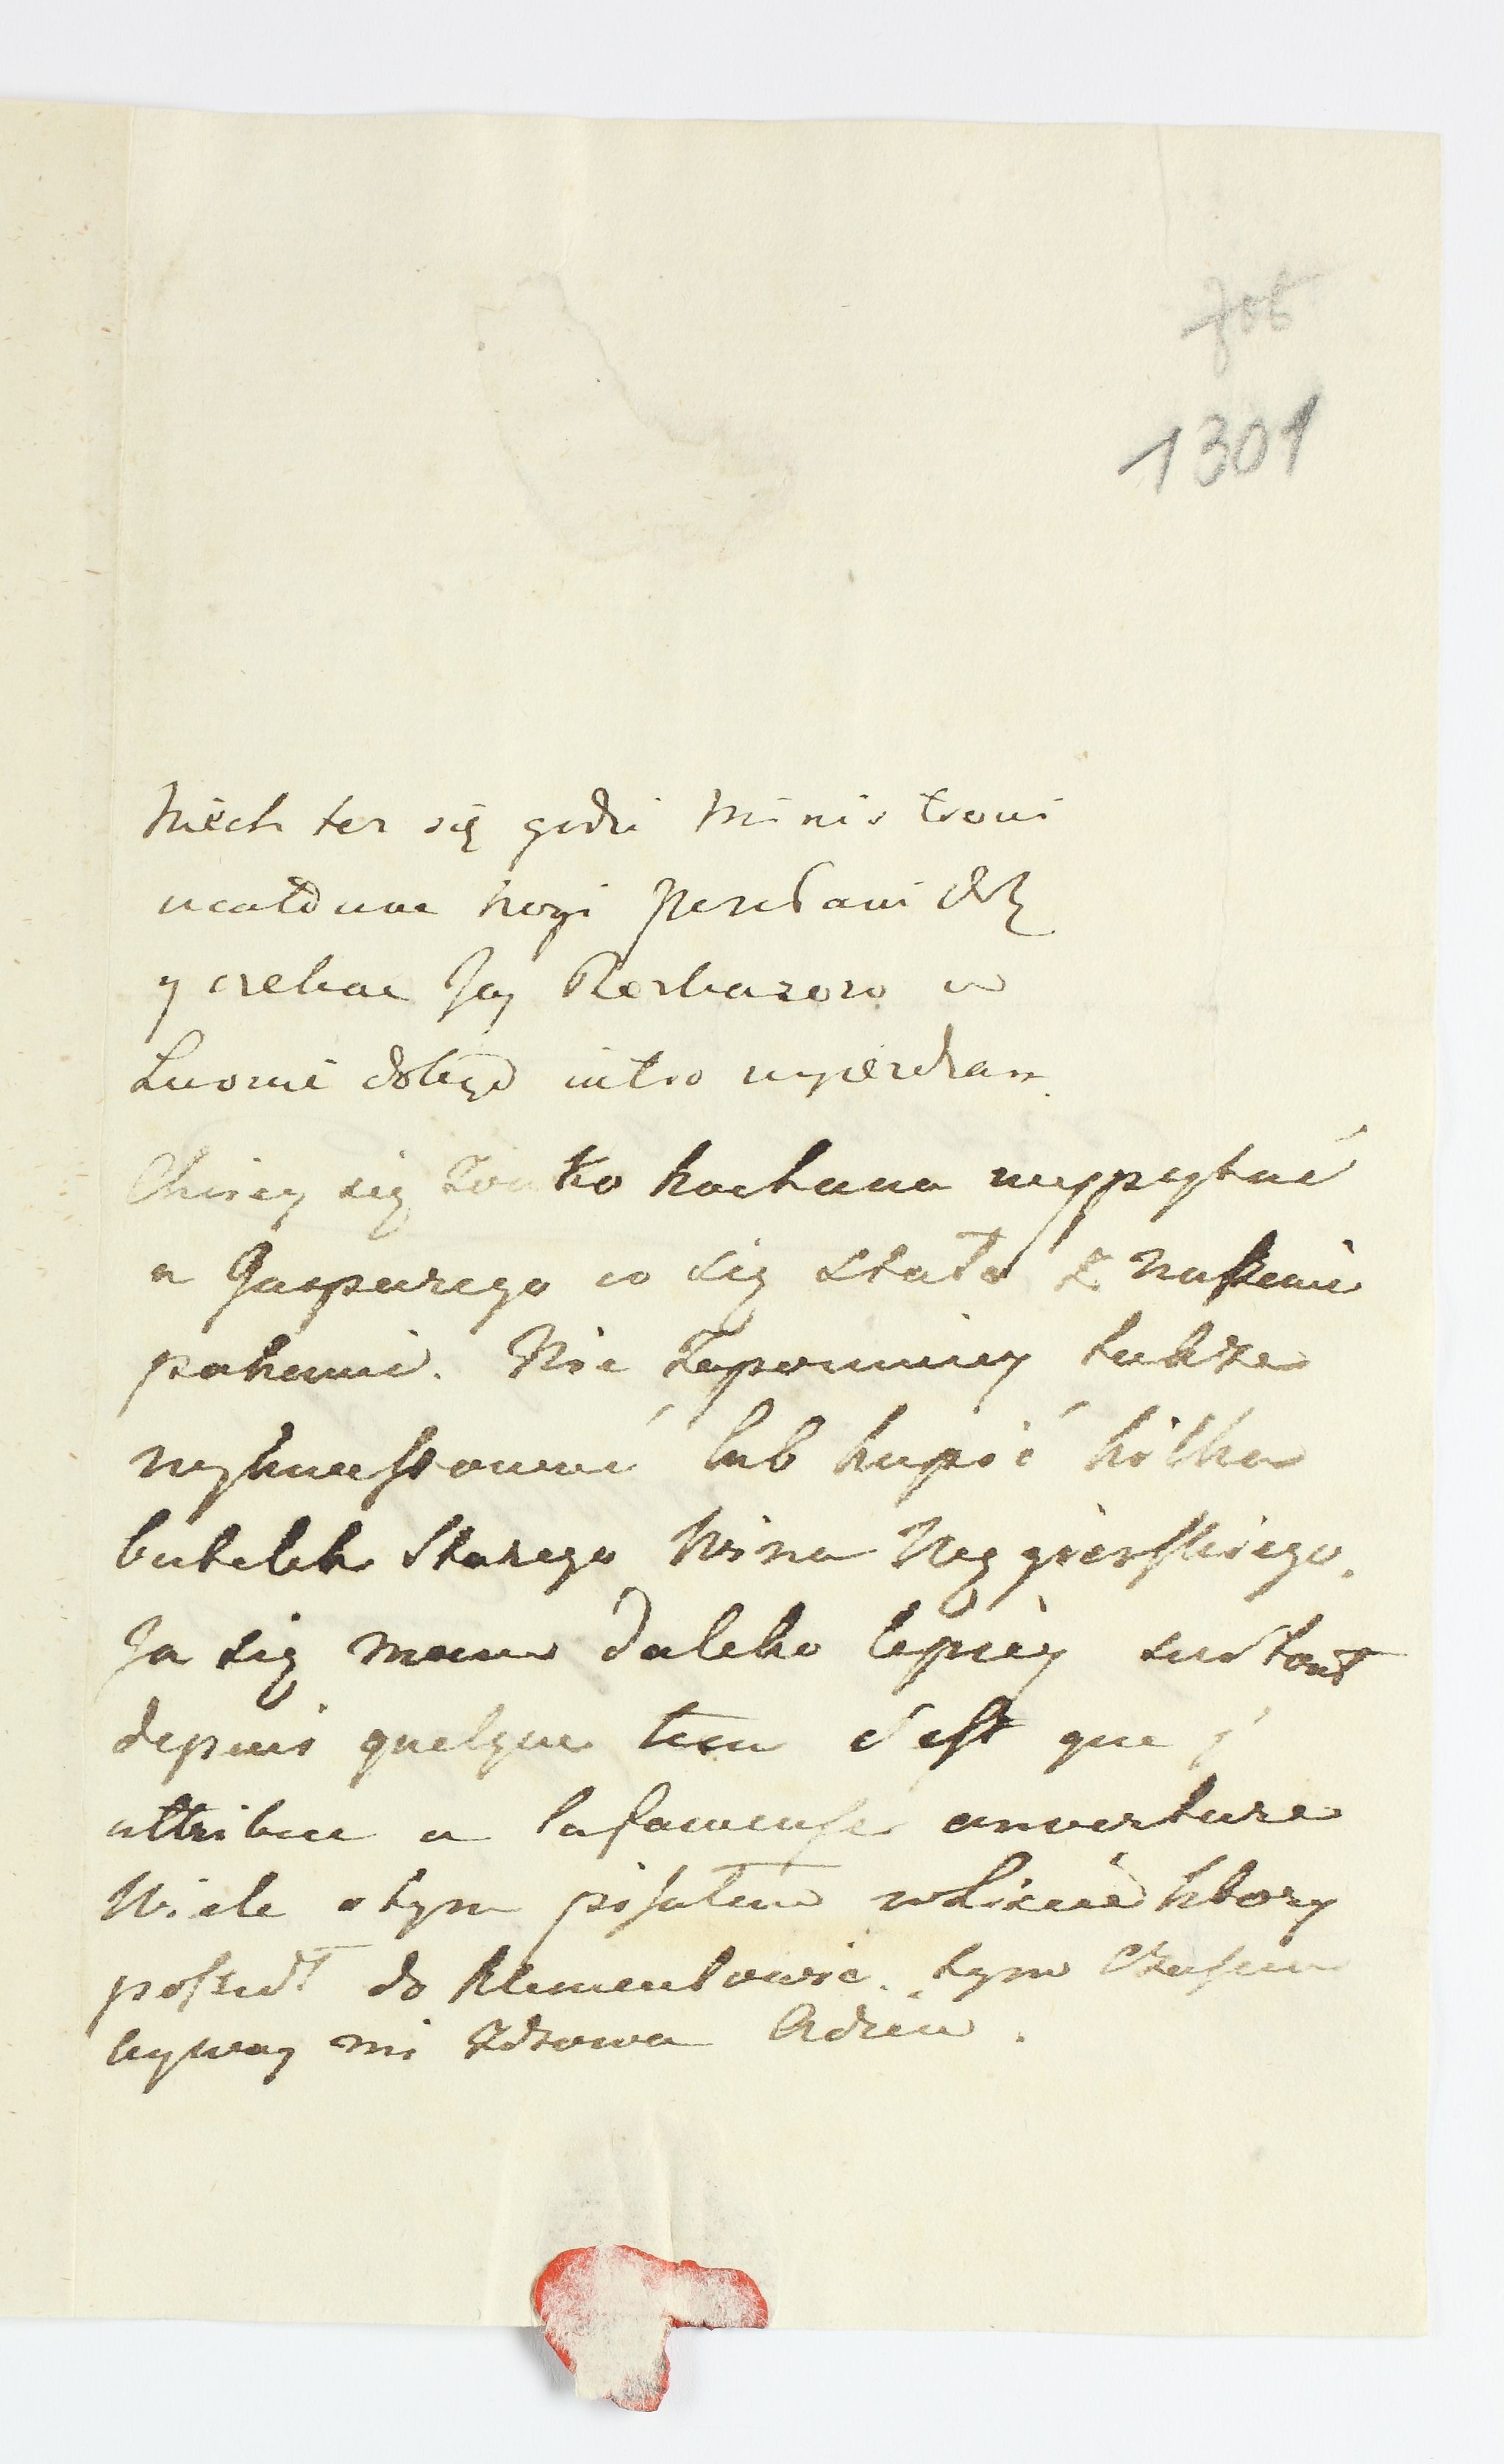 706
1301
Niech tez się godzi Ministrowi
ucałować nogi
y czekac Jey w
Lwowie dokąd iutro wyiezdzam
Chciey się Zonko kochana wypytać
u Gasparego co się stało z naszemi
pakami. Nie Zapomniey także
wykwestować lub kupić kilka
butelek Starego Wina Węgierskiego.
Ja się mam daleko lepiey surtout
depuis quelque tem c'est que j'
attribue a lafameuse ouverture
Wiele o tym pisałem w Liście ktory
poszedł do Klementowic. tym Czasem
byway mi zdrowa Adieu.